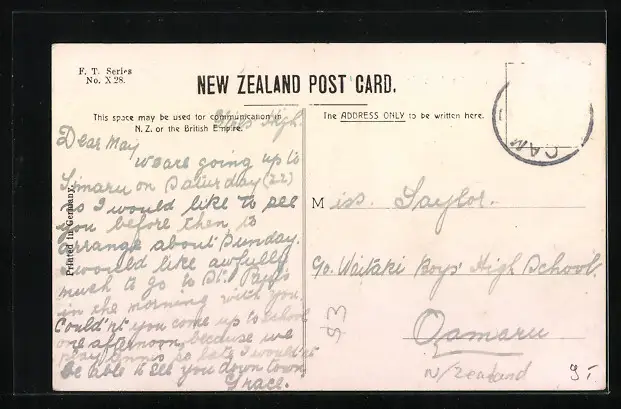 F. T. Series
No. X 28.
NEW ZEALAND POST CARD.
This space may be used for communication in
N.Z. or the British Empire.
The ADDRESS ONLY to be written here.
Printed in Germany.
High.
Dear May
we are going up to
Timaru on Saturday (22)
so I would like to see
you before then, to
arrange about Sunday.
I would like awfully
much to go to St. Paul's
in the morning with you.
Could'nt you come up to school
one afternoon, because we
play tennis so late I would'nt
be able to see you down town
Grace.
CAM
Miss. Saylor.
c/o. Waitaki Boys' High School.
Oamaru
N/Zealand
93
9-